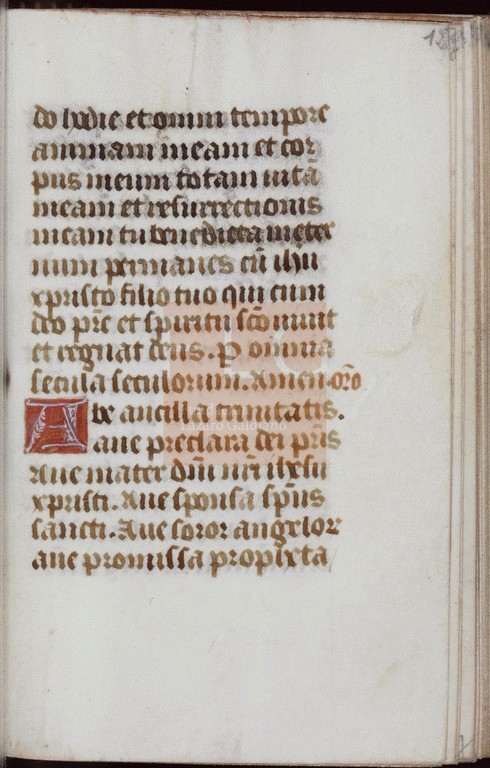 128
do hodie et omni tempore
animam meam et cor
pus meum totam uitā
meam et resurrectionis
meam tu benedicta in eter
num permanes cū ihū
xpristo filio tuo qui cum
deo pr̄e et spiritu sc̄o uiuit
et regnat deus. P omnia
secula seculorum. Amen. or̄o
Abe ancilla trinitatis.
aue preclara dei pr̄is
Aue mater dn̄i nr̄i ihesu
xpristi. Aue sponsa sp̄us
sancti. Aue soror angelor
aue promissa propheta
Lázaro Galdiano